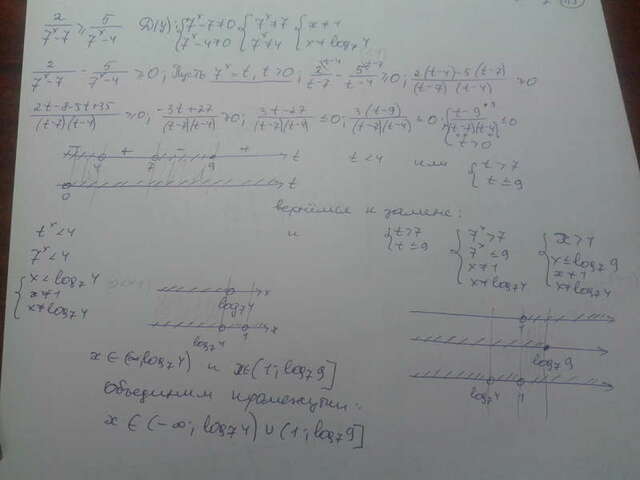 2/(7^x-7) ≥ 5/(7^x-4) D(y): {7^x-7≠0 7^x-4≠0 {7^x≠7 7^x≠4 {x≠1 x≠log_7 4
2/(7^x-7) - 5/(7^x-4) ≥0; Пусть 7^x=t, t>0; 2/(t-7) - 5/(t-4) ≥0; (2(t-4)-5(t-7))/((t-7)(t-4)) ≥0
(2t-8-5t+35)/((t-7)(t-4)) ≥0; (-3t+27)/((t-7)(t-4)) ≥0; (3t-27)/((t-7)(t-4)) ≤0; 3(t-9)/((t-7)(t-4)) ≤0; {(t-9)/((t-7)(t-4)) ≤0 t>0
- + - + 4 7 9 t t<4 или {t>7 t≤9
0 t
вернёмся к замене:
t^x<4 и {t>7 t≤9 {7^x>7 7^x≤9 x≠1 x≠log_7 4 {x>1 x≤log_7 9 x≠1 x≠log_7 4
7^x<4
{x<log_7 4 x≠1 x≠log_7 4
log_7 4 x
log_7 4 1 x
1
log_7 9
log_7 4 1
x∈(-∞;log_7 4) и x∈(1;log_7 9]
Объединим промежутки:
x∈(-∞; log_7 4)∪(1; log_7 9]